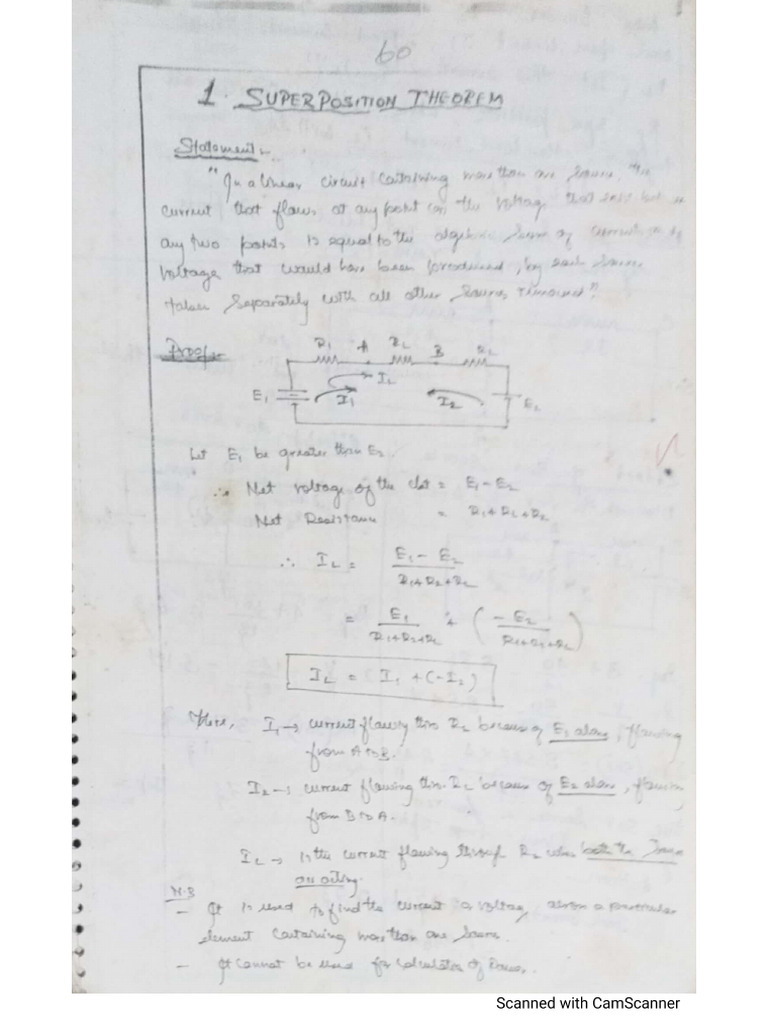 60
1. SUPERPOSITION THEOREM
Statement:-
"In a linear circuit containing more than one source, the
current that flows at any point or the voltage that exist bet n
any two points is equal to the algebraic sum of current or
voltage that would have been produced, by each source
taken separately with all other sources removed".
Proof:-
R1 A RL B R2
IL
E1 I1 I2 E2
Let E1 be greater than E2.
∴ Net voltage of the ckt = E1 - E2
Net Resistance = R1+RL+R2
∴ IL = E1 - E2 / R1+R2+RL
= E1 / R1+R2+RL + ( -E2 / R1+R2+RL )
IL = I1 + (-I2)
Here, I1 → current flowing thro RL because of E1 alone, flowing
from A to B.
I2 → current flowing thro. RL because of E2 alone, flowing
from B to A.
IL → is the current flowing through RL when both the
are acting.
N.B
- It is used to find the current or voltage, across a particular
element containing more than one source.
- It cannot be used for calculation of Power.
Scanned with CamScanner